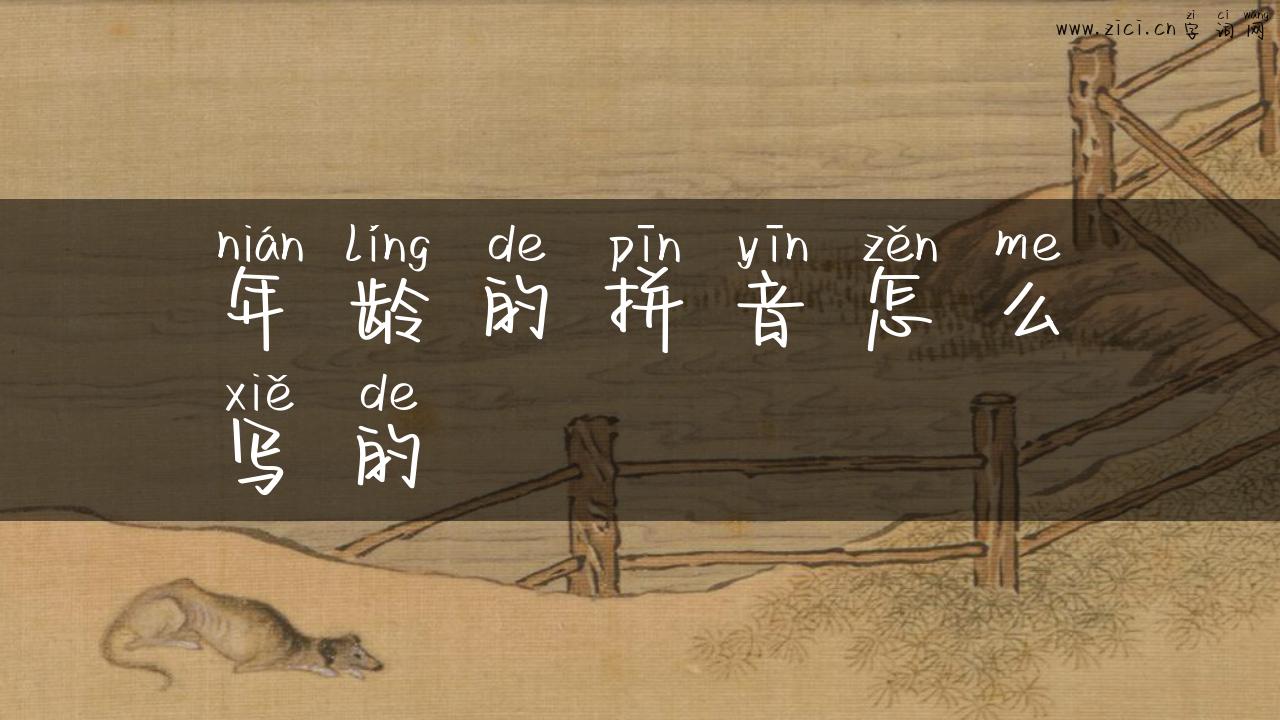 zì cí wǎng
www.zici.cn 字词网
nián líng de pīn yīn zěn me
年龄的拼音怎么
xiě de
写的